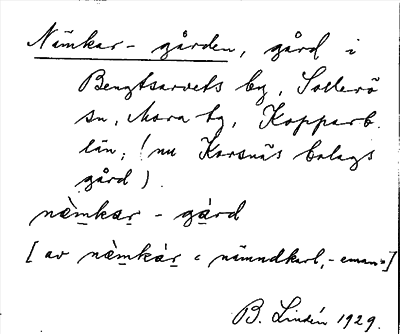 Nämkar-gården, gård i
Bengtsarvets by, Sollerö
sn, Mora tg, Kopparb.
län; (nu Korsnäs bolags
gård).
nä̀m̠kar̠ - gá̠rd
[av nä̀m̠ká̠r̠ = nämndkarl, -eman"]
B. Lindén 1929.